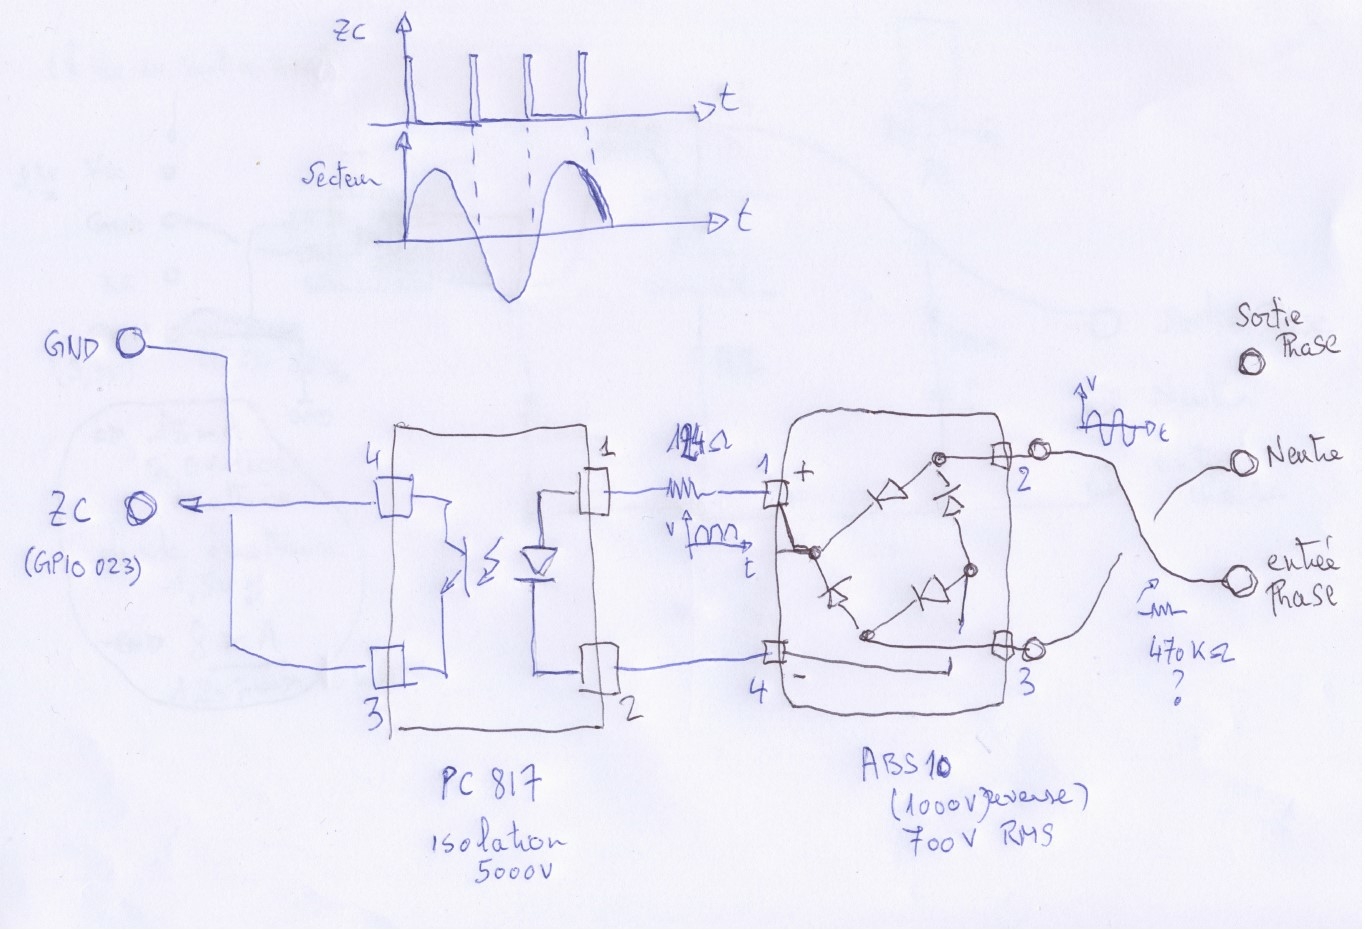 ZC
t
Secteur
t
Sortie
Phase
GND
V
t
4
1
1
+
2
Neutre
ZC
(GPIO 023)
V
t
entrée
Phase
470KΩ
?
3
2
4
-
3
PC 817
isolation
5000V
ABS10
(1000V reverse)
700V RMS